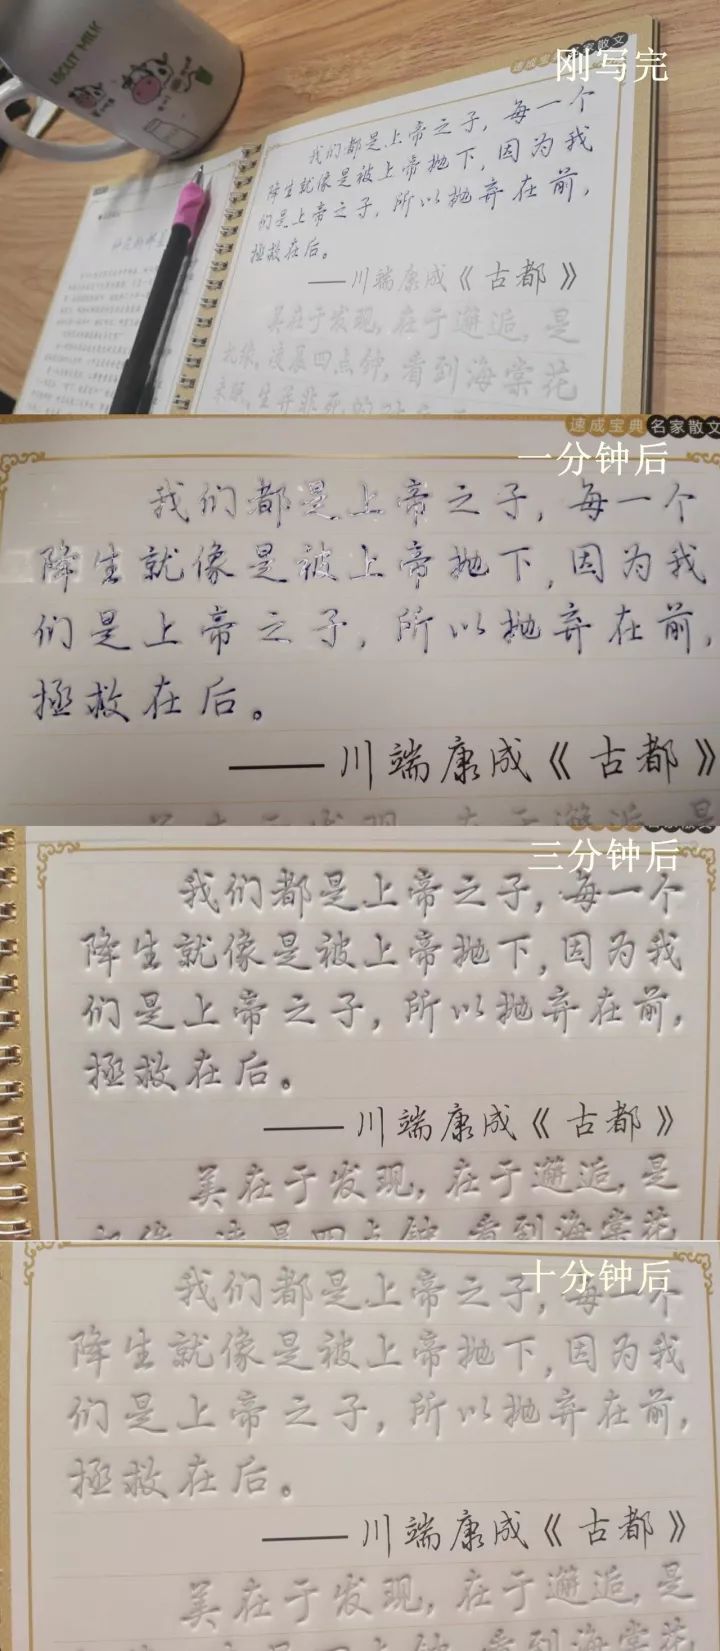 ABOUT MILK
速成宝典 名家散文
刚写完
我们都是上帝之子，每一个
降生就像是被上帝抛下，因为我
们是上帝之子，所以抛弃在前，
拯救在后。
——川端康成《古都》
美在于发现，在于邂逅，是
机缘。凌晨四点钟，看到海棠花
未眠
速成宝典 名家散文
一分钟后
我们都是上帝之子，每一个
降生就像是被上帝抛下，因为我
们是上帝之子，所以抛弃在前，
拯救在后。
——川端康成《古都》
三分钟后
我们都是上帝之子，每一个
降生就像是被上帝抛下，因为我
们是上帝之子，所以抛弃在前，
拯救在后。
——川端康成《古都》
美在于发现，在于邂逅，是
机缘。凌晨四点钟，看到海棠花
十分钟后
我们都是上帝之子，每一个
降生就像是被上帝抛下，因为我
们是上帝之子，所以抛弃在前，
拯救在后。
——川端康成《古都》
美在于发现，在于邂逅，是